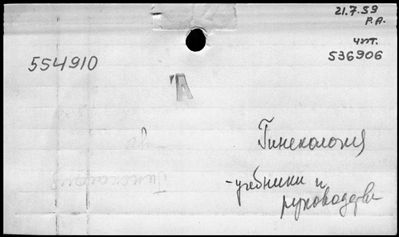 21.7.59
Р.А.
чит.
536906
554910
Гинекология
- учебники и
руководства